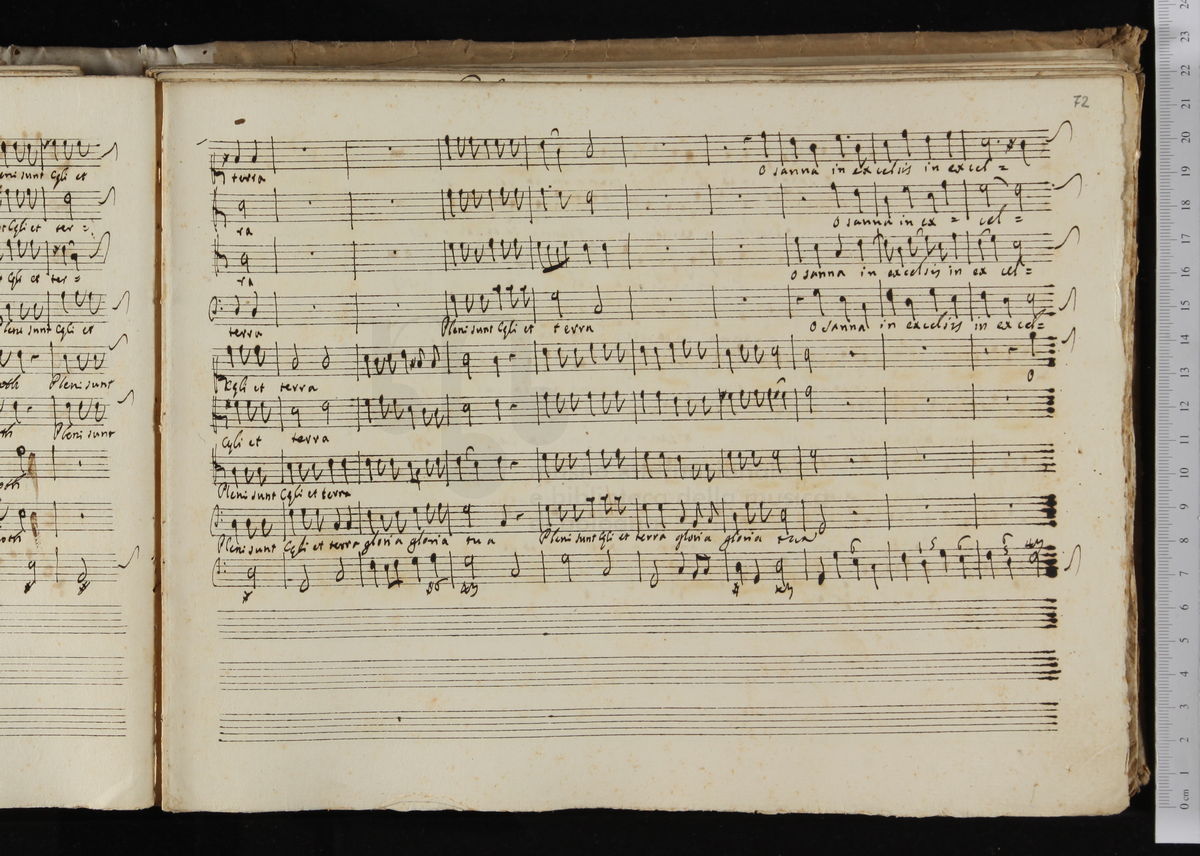 72
terra O sanna in excelsis in excel=
ra O sanna in ex = cel =
ra O sanna in excelsis in ex cel=
terra Pleni sunt Cęli et terra O sanna in excelsis in excel=
Cęli et terra O
Cęli et terra
Pleni sunt Cęli et terra
Pleni sunt Cęli et terra gloria gloria tua Pleni sunt Cęli et terra gloria gloria tua
6 5 6 5
eni sunt Cęli et
Cęli et ter =
Cęli et ter =
Pleni sunt Cęli et
oth Pleni sunt
th Pleni sunt
oth
oth